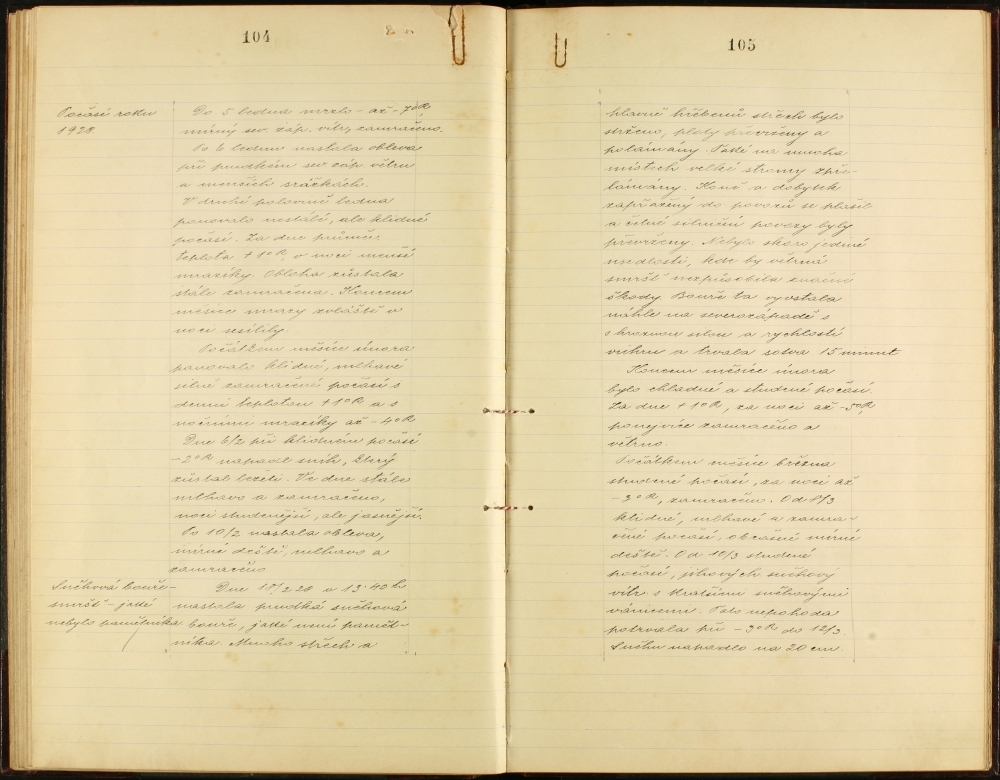 104
Počasí roku
1928
Do 5 ledna mrzlo - až - 7°R,
mírný sev. záp. vítr, zamračeno.
Po 6 lednu nastala obleva
při prudkém sev. záp. větru
a menších srážkách.
V druhé polovině ledna
panovalo nestálé, ale klidné
počasí. Za dne průměr.
teplota + 1°R, v noci menší
mrazíky. Obloha zůstala
stále zamračena. Koncem
měsíce mrazy zvláště v
noci sesílily.
Počátkem měsíce února
panovalo klidné, mlhavé
silně zamračené počasí s
denní teplotou + 1°R a s
nočními mrazíky až - 4°R
Dne 6/2 při klidném počasí
- 2°R napadl sníh, který
zůstal ležeti. Ve dne stále
mlhavo a zamračeno,
noci studenější, ale jasnější.
Po 10/2 nastala obleva,
mírné deště, mlhavo a
zamračeno
Sněhová bouře -
smršť - jaké
nebylo pamětníka
Dne v 13.40 h
nastala prudká sněhová
bouře, jaké není pamět-
níka. Mnoho střech a
105
hlavně hřebenů střech bylo
strženo, ploty převrženy a
polámány. Také na mnoha
místech velké stromy zpře-
lámány. Koně a dobytek
zapřažený do povozů se plašil
a četné silniční povozy byly
převrženy. Nebylo skoro jediné
usedlosti, kde by větrná
smršť nezpůsobila značné
škody. Bouře ta vyvstala
náhle na severozápadě s
s hroznou silou a rychlostí
vichru a trvala sotva 15 minut
Koncem měsíce února
bylo chladné a studené počasí.
Za dne + 1°R, za noci až - 5°R,
ponejvíce zamračeno a
větrno.
Počátkem měsíce března
studené počasí, za noci až
- 3°R, zamračeno. Od 8/3
klidné, mlhavé a zamra-
čné počasí, občasné mírné
deště. Od 10/3 studené
počasí, sněhový
vítr s kratšími sněhovými
vánicemi. Tato nepohoda
potrvala při - 3°R do 12/3.
Sněhu napadlo na 20 cm.